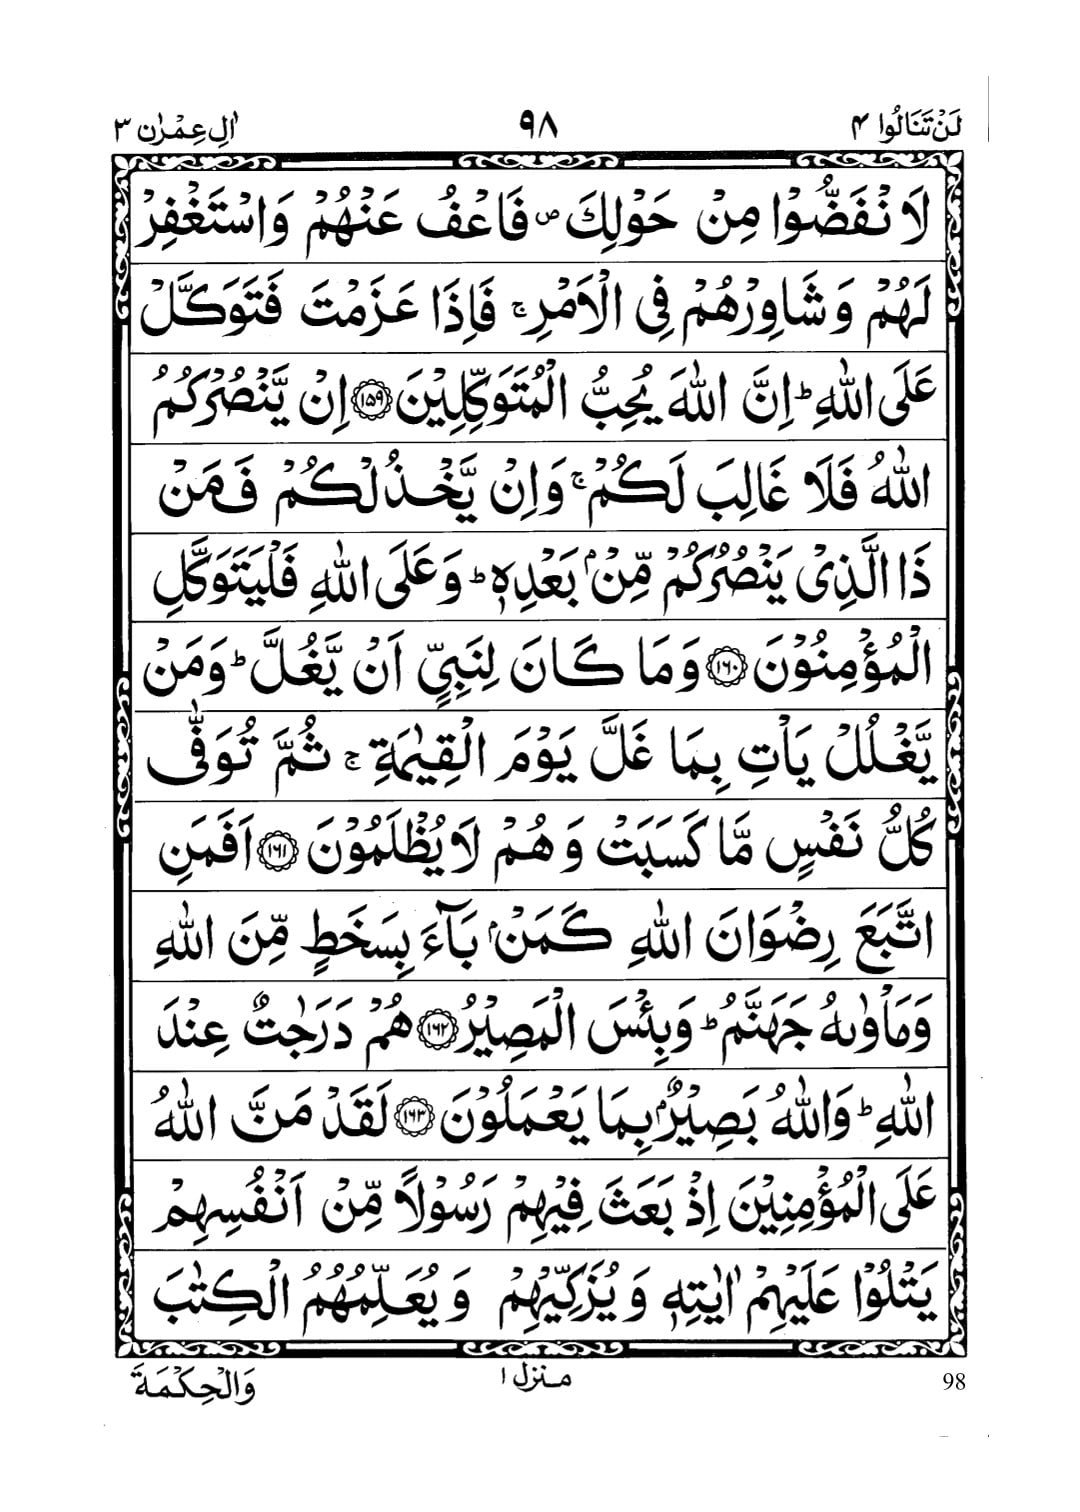 لَنْ تَنَالُوا ۴
۹۸
اٰلِ عِمْرٰن ۳
لَا نْفَضُّوْا مِنْ حَوْلِكَ ۪ فَاعْفُ عَنْهُمْ وَاسْتَغْفِرْ
لَهُمْ وَشَاوِرْهُمْ فِی الْاَمْرِ ۚ فَاِذَا عَزَمْتَ فَتَوَكَّلْ
عَلَی اللّٰهِ ؕ اِنَّ اللّٰهَ یُحِبُّ الْمُتَوَكِّلِیْنَ ﴿۱۵۹﴾ اِنْ یَّنْصُرْكُمُ
اللّٰهُ فَلَا غَالِبَ لَكُمْ ۚ وَاِنْ یَّخْذُلْكُمْ فَمَنْ
ذَا الَّذِیْ یَنْصُرُكُمْ مِّنْۢ بَعْدِهٖ ؕ وَعَلَی اللّٰهِ فَلْیَتَوَكَّلِ
الْمُؤْمِنُوْنَ ﴿۱۶۰﴾ وَمَا كَانَ لِنَبِیٍّ اَنْ یَّغُلَّ ؕ وَمَنْ
یَّغْلُلْ یَاْتِ بِمَا غَلَّ یَوْمَ الْقِیٰمَةِ ۚ ثُمَّ تُوَفّٰی
كُلُّ نَفْسٍ مَّا كَسَبَتْ وَهُمْ لَا یُظْلَمُوْنَ ﴿۱۶۱﴾ اَفَمَنِ
اتَّبَعَ رِضْوَانَ اللّٰهِ كَمَنْۢ بَآءَ بِسَخَطٍ مِّنَ اللّٰهِ
وَمَاْوٰىهُ جَهَنَّمُ ؕ وَبِئْسَ الْمَصِیْرُ ﴿۱۶۲﴾ هُمْ دَرَجٰتٌ عِنْدَ
اللّٰهِ ؕ وَاللّٰهُ بَصِیْرٌۢ بِمَا یَعْمَلُوْنَ ﴿۱۶۳﴾ لَقَدْ مَنَّ اللّٰهُ
عَلَی الْمُؤْمِنِیْنَ اِذْ بَعَثَ فِیْهِمْ رَسُوْلًا مِّنْ اَنْفُسِهِمْ
یَتْلُوْا عَلَیْهِمْ اٰیٰتِهٖ وَیُزَكِّیْهِمْ وَیُعَلِّمُهُمُ الْكِتٰبَ
98
منزل ۱
وَالْحِكْمَةَ